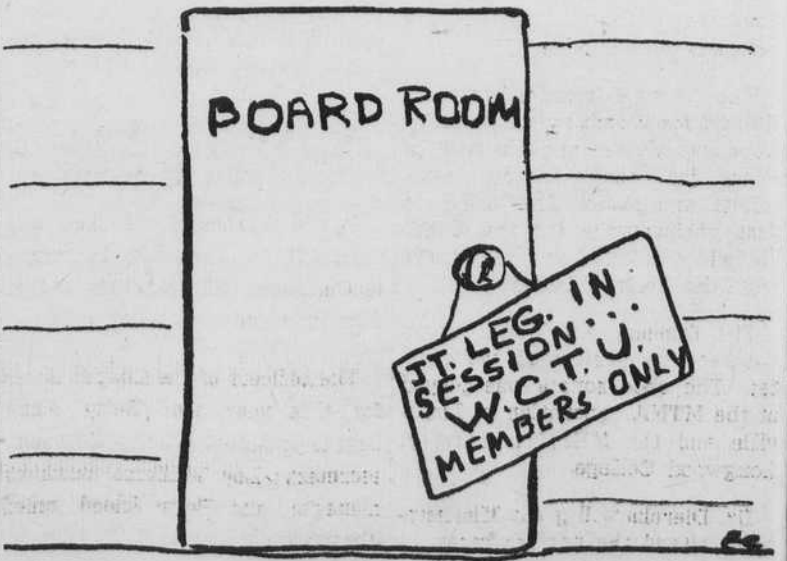 BOARD ROOM
JT. LEG. IN
SESSION...
W.C.T.U.
MEMBERS ONLY